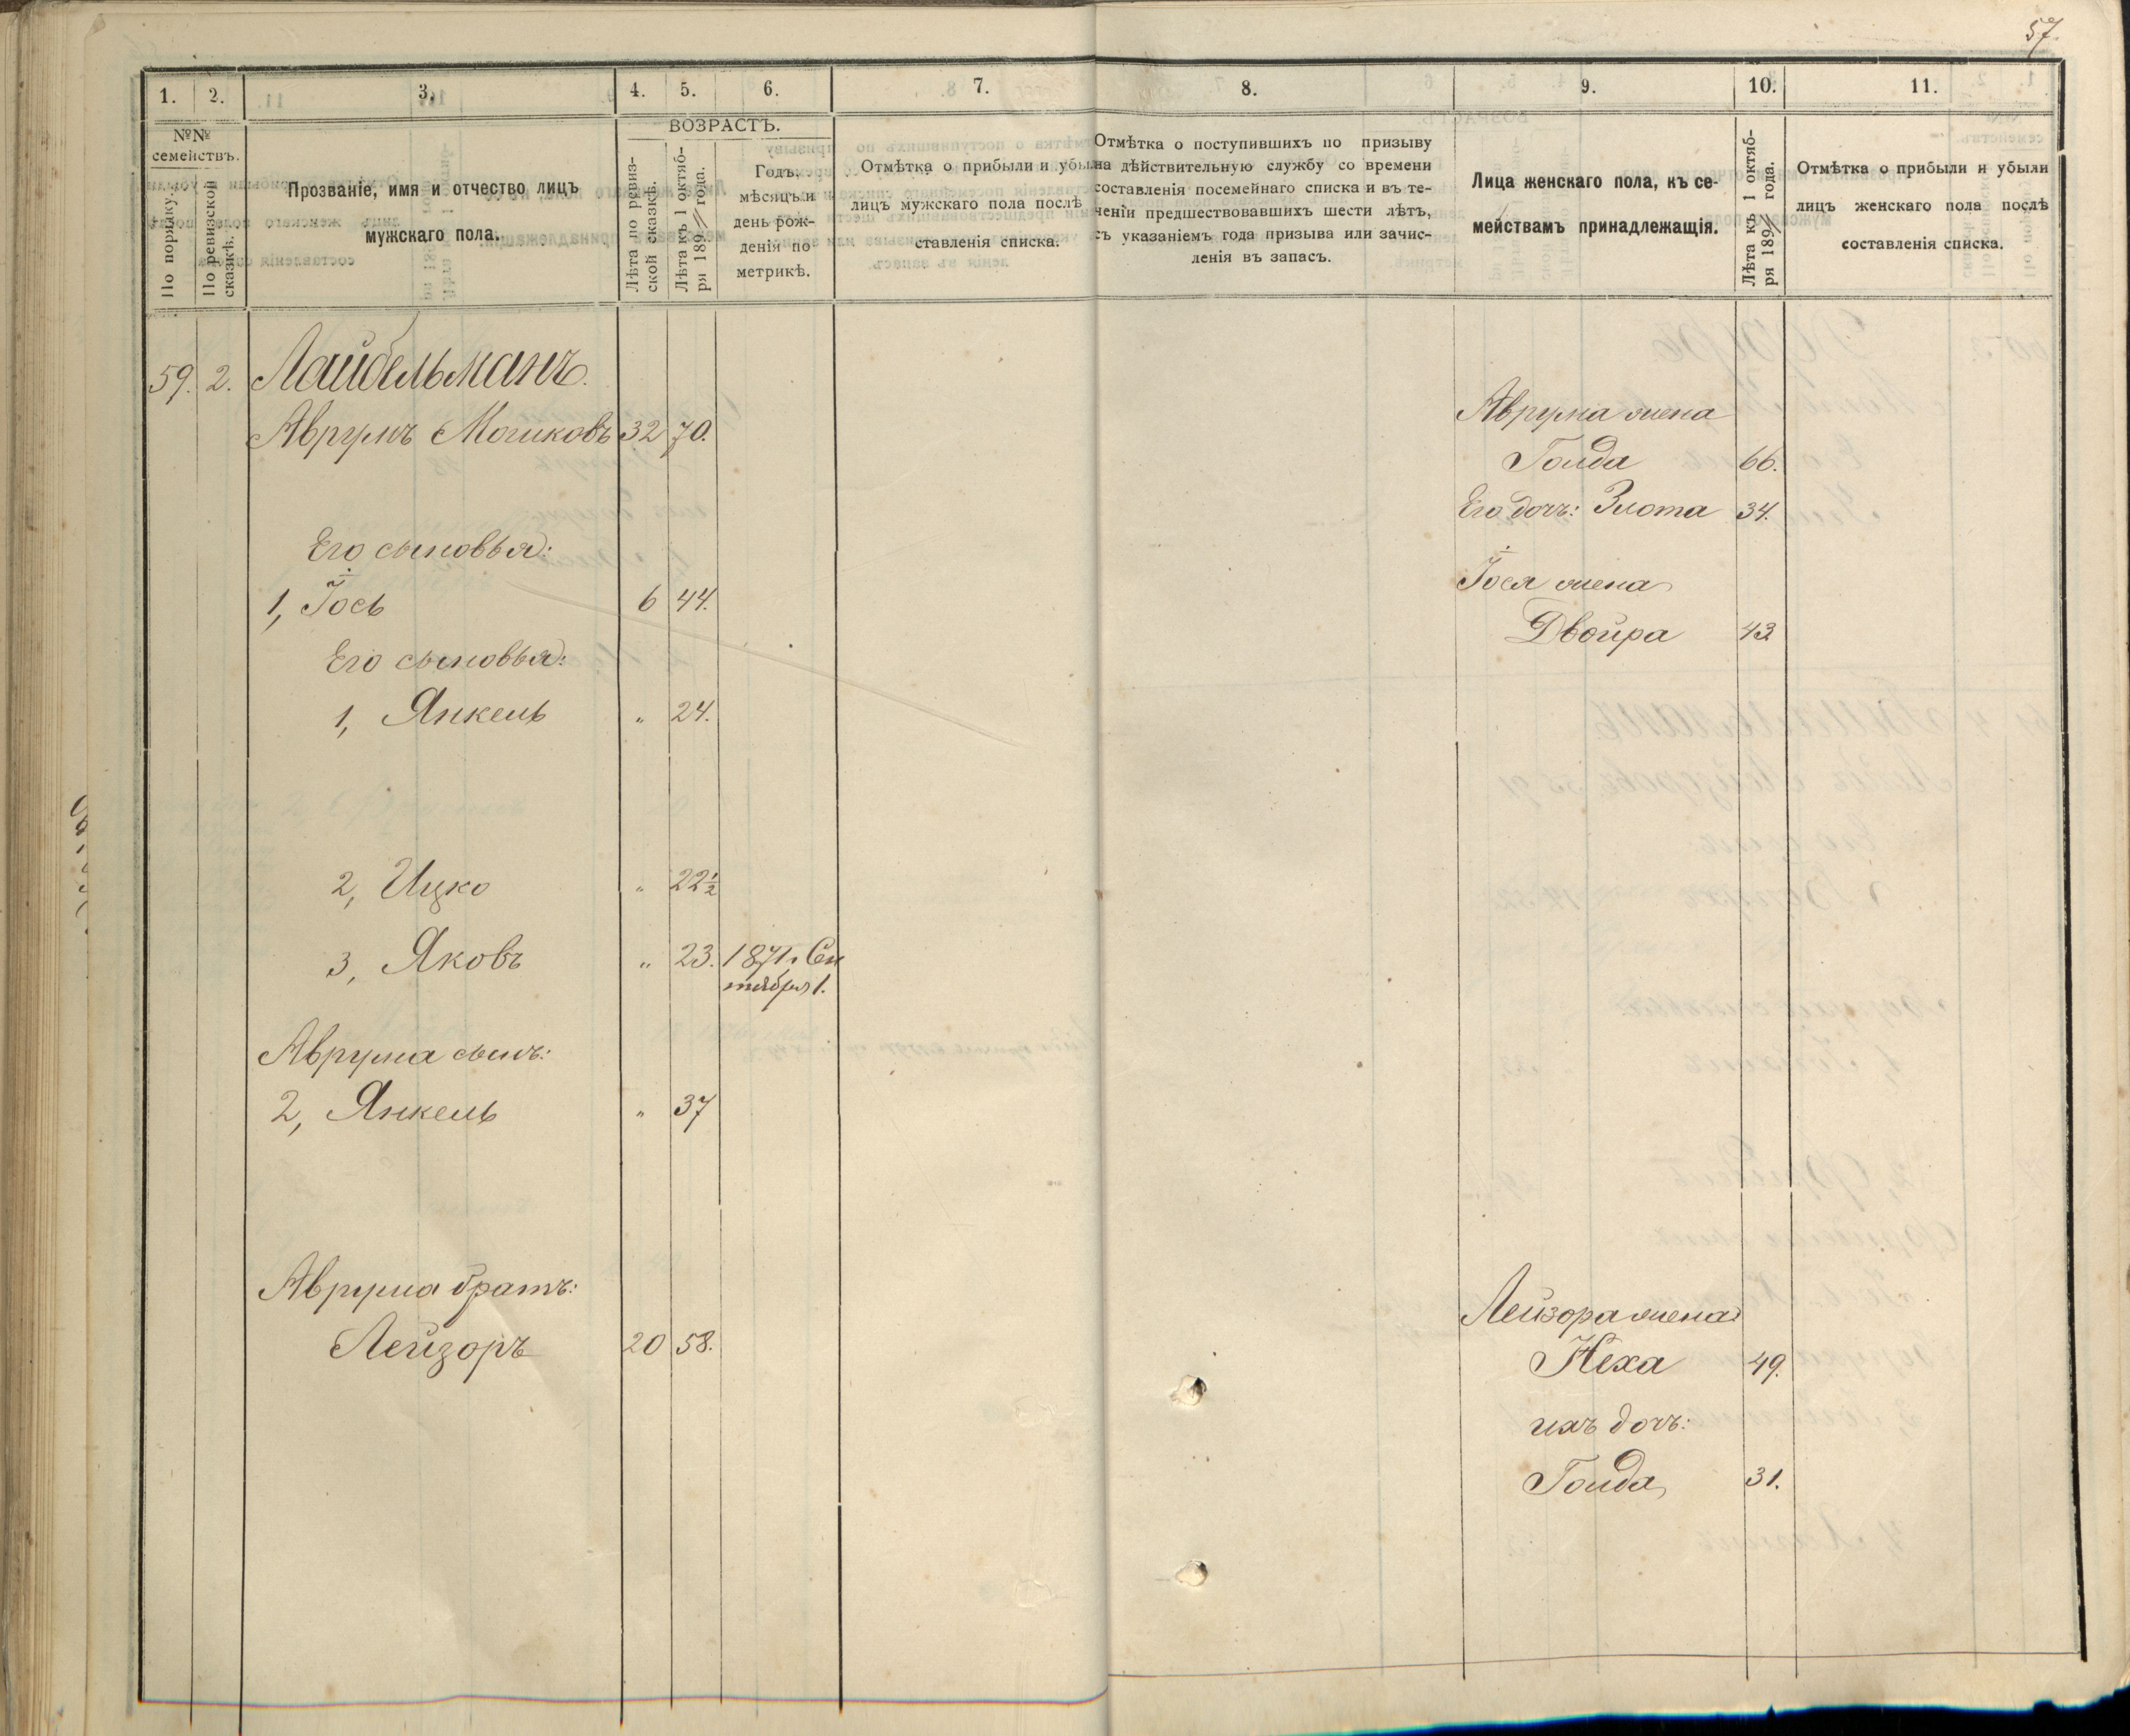 57.
1. 2. 3. 4. 5. 6. 7. 8. 9. 10. 11.
№№ семействъ.
По порядку.
По ревизской сказкѣ.
Прозваніе, имя и отчество лицъ
мужскаго пола.
ВОЗРАСТЪ.
Лѣта по ревиз-
ской сказкѣ.
Лѣта къ 1 октяб-
ря 189 года.
Годъ,
мѣсяцъ и
день рож-
денія по
метрикѣ.
Отмѣтка о прибыли и убыли
лицъ мужскаго пола послѣ
ставленія списка.
Отмѣтка о поступившихъ по призыву
на дѣйствительную службу со времени
составленія посемейнаго списка и въ те-
ченіи предшествовавшихъ шести лѣтъ,
съ указаніемъ года призыва или зачис-
ленія въ запасъ.
Лица женскаго пола, къ се-
мействамъ принадлежащія.
Лѣта къ 1 октяб-
ря 189 года.
Отмѣтка о прибыли и убыли
лицъ женскаго пола послѣ
составленія списка.
59. 2. Лайбельманъ.
Аврумъ Мошковъ 32 70.
Аврума жена
Голда 66.
Его дочь: Злота 34.
Его сыновья:
1, Іось 6 44.
Іося жена
Двойра 43
Его сыновья:
1, Янкель " 24.
2, Ицко " 22½
3, Яковъ " 23. 1871 г. Сен
тября 1.
Аврума сынъ:
2, Янкель " 37
Аврума братъ:
Лейзоръ 20 58.
Лейзора жена
Неха 49.
ихъ дочь:
Голда 31.